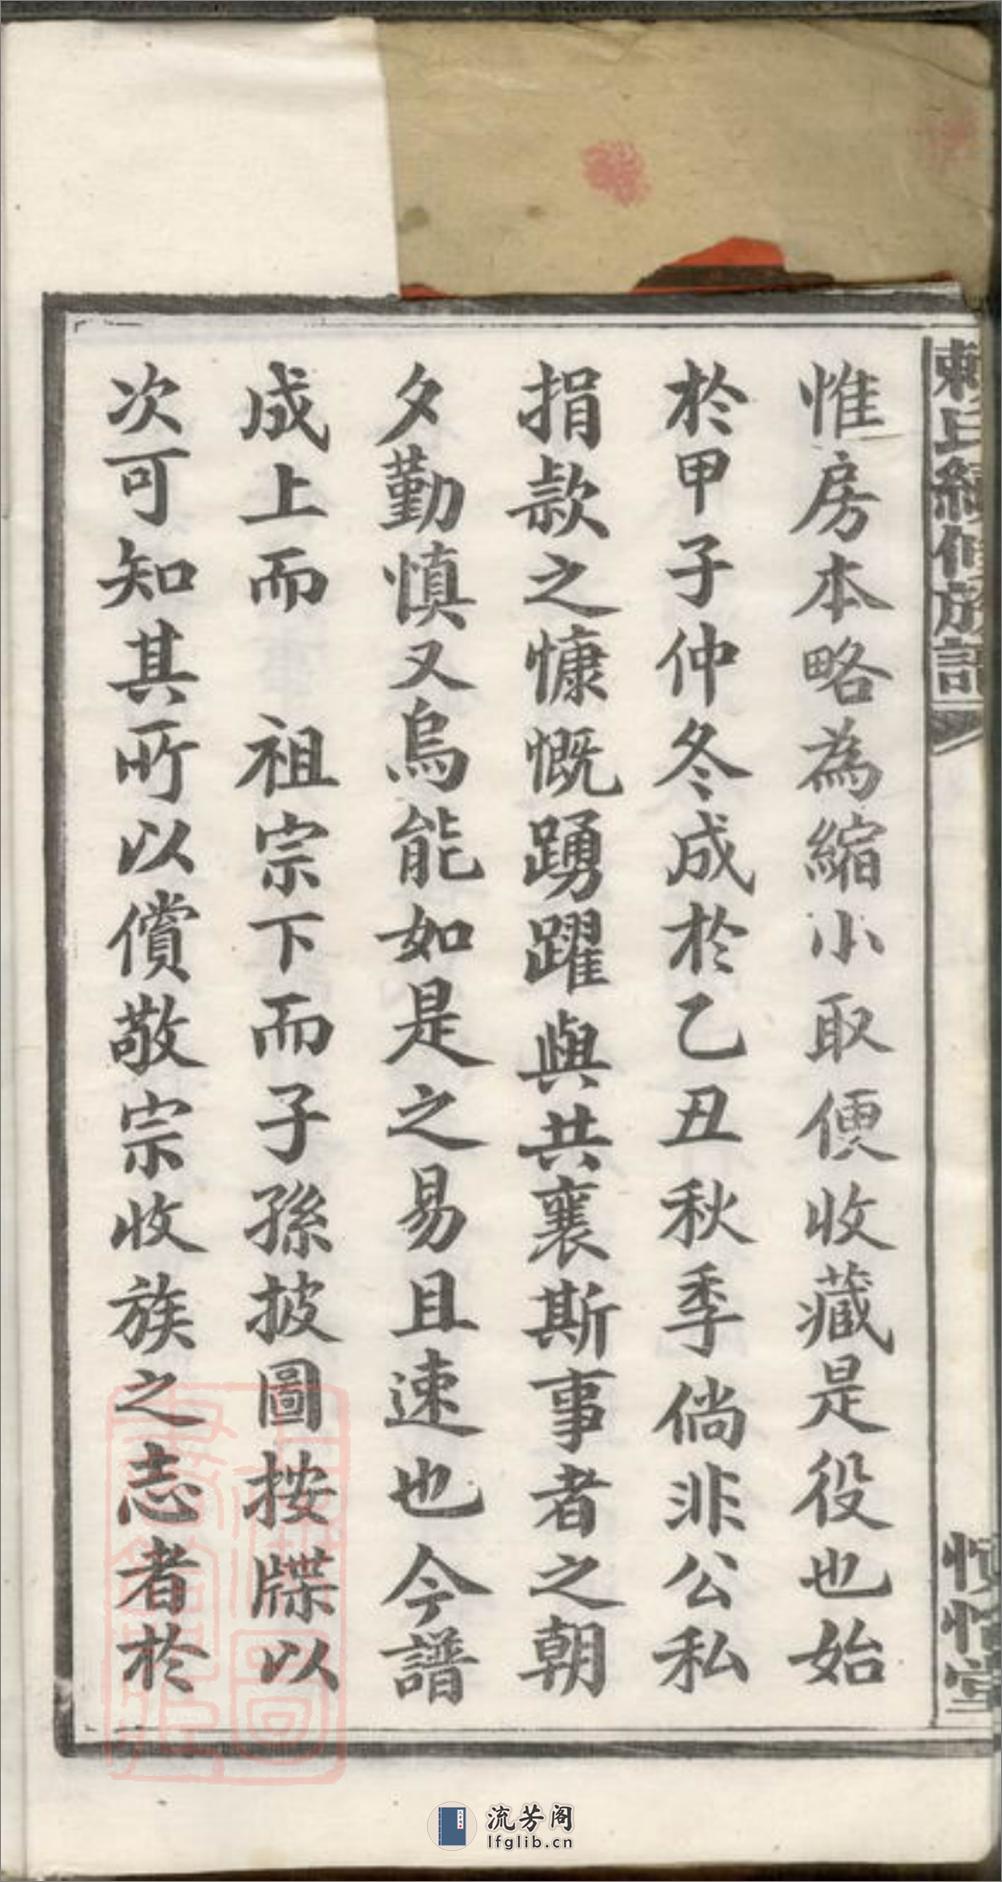 賴氏續修族譜
惟房本略為縮小取便收藏是役也始
於甲子仲冬成於乙丑秋季倘非公私
捐款之慷慨踴躍與共襄斯事者之朝
夕勤慎又烏能如是之易且速也今譜
成上而　祖宗下而子孫披圖按牒以
次可知其所以償敬宗收族之志者於
流芳阁
lfglib.cn